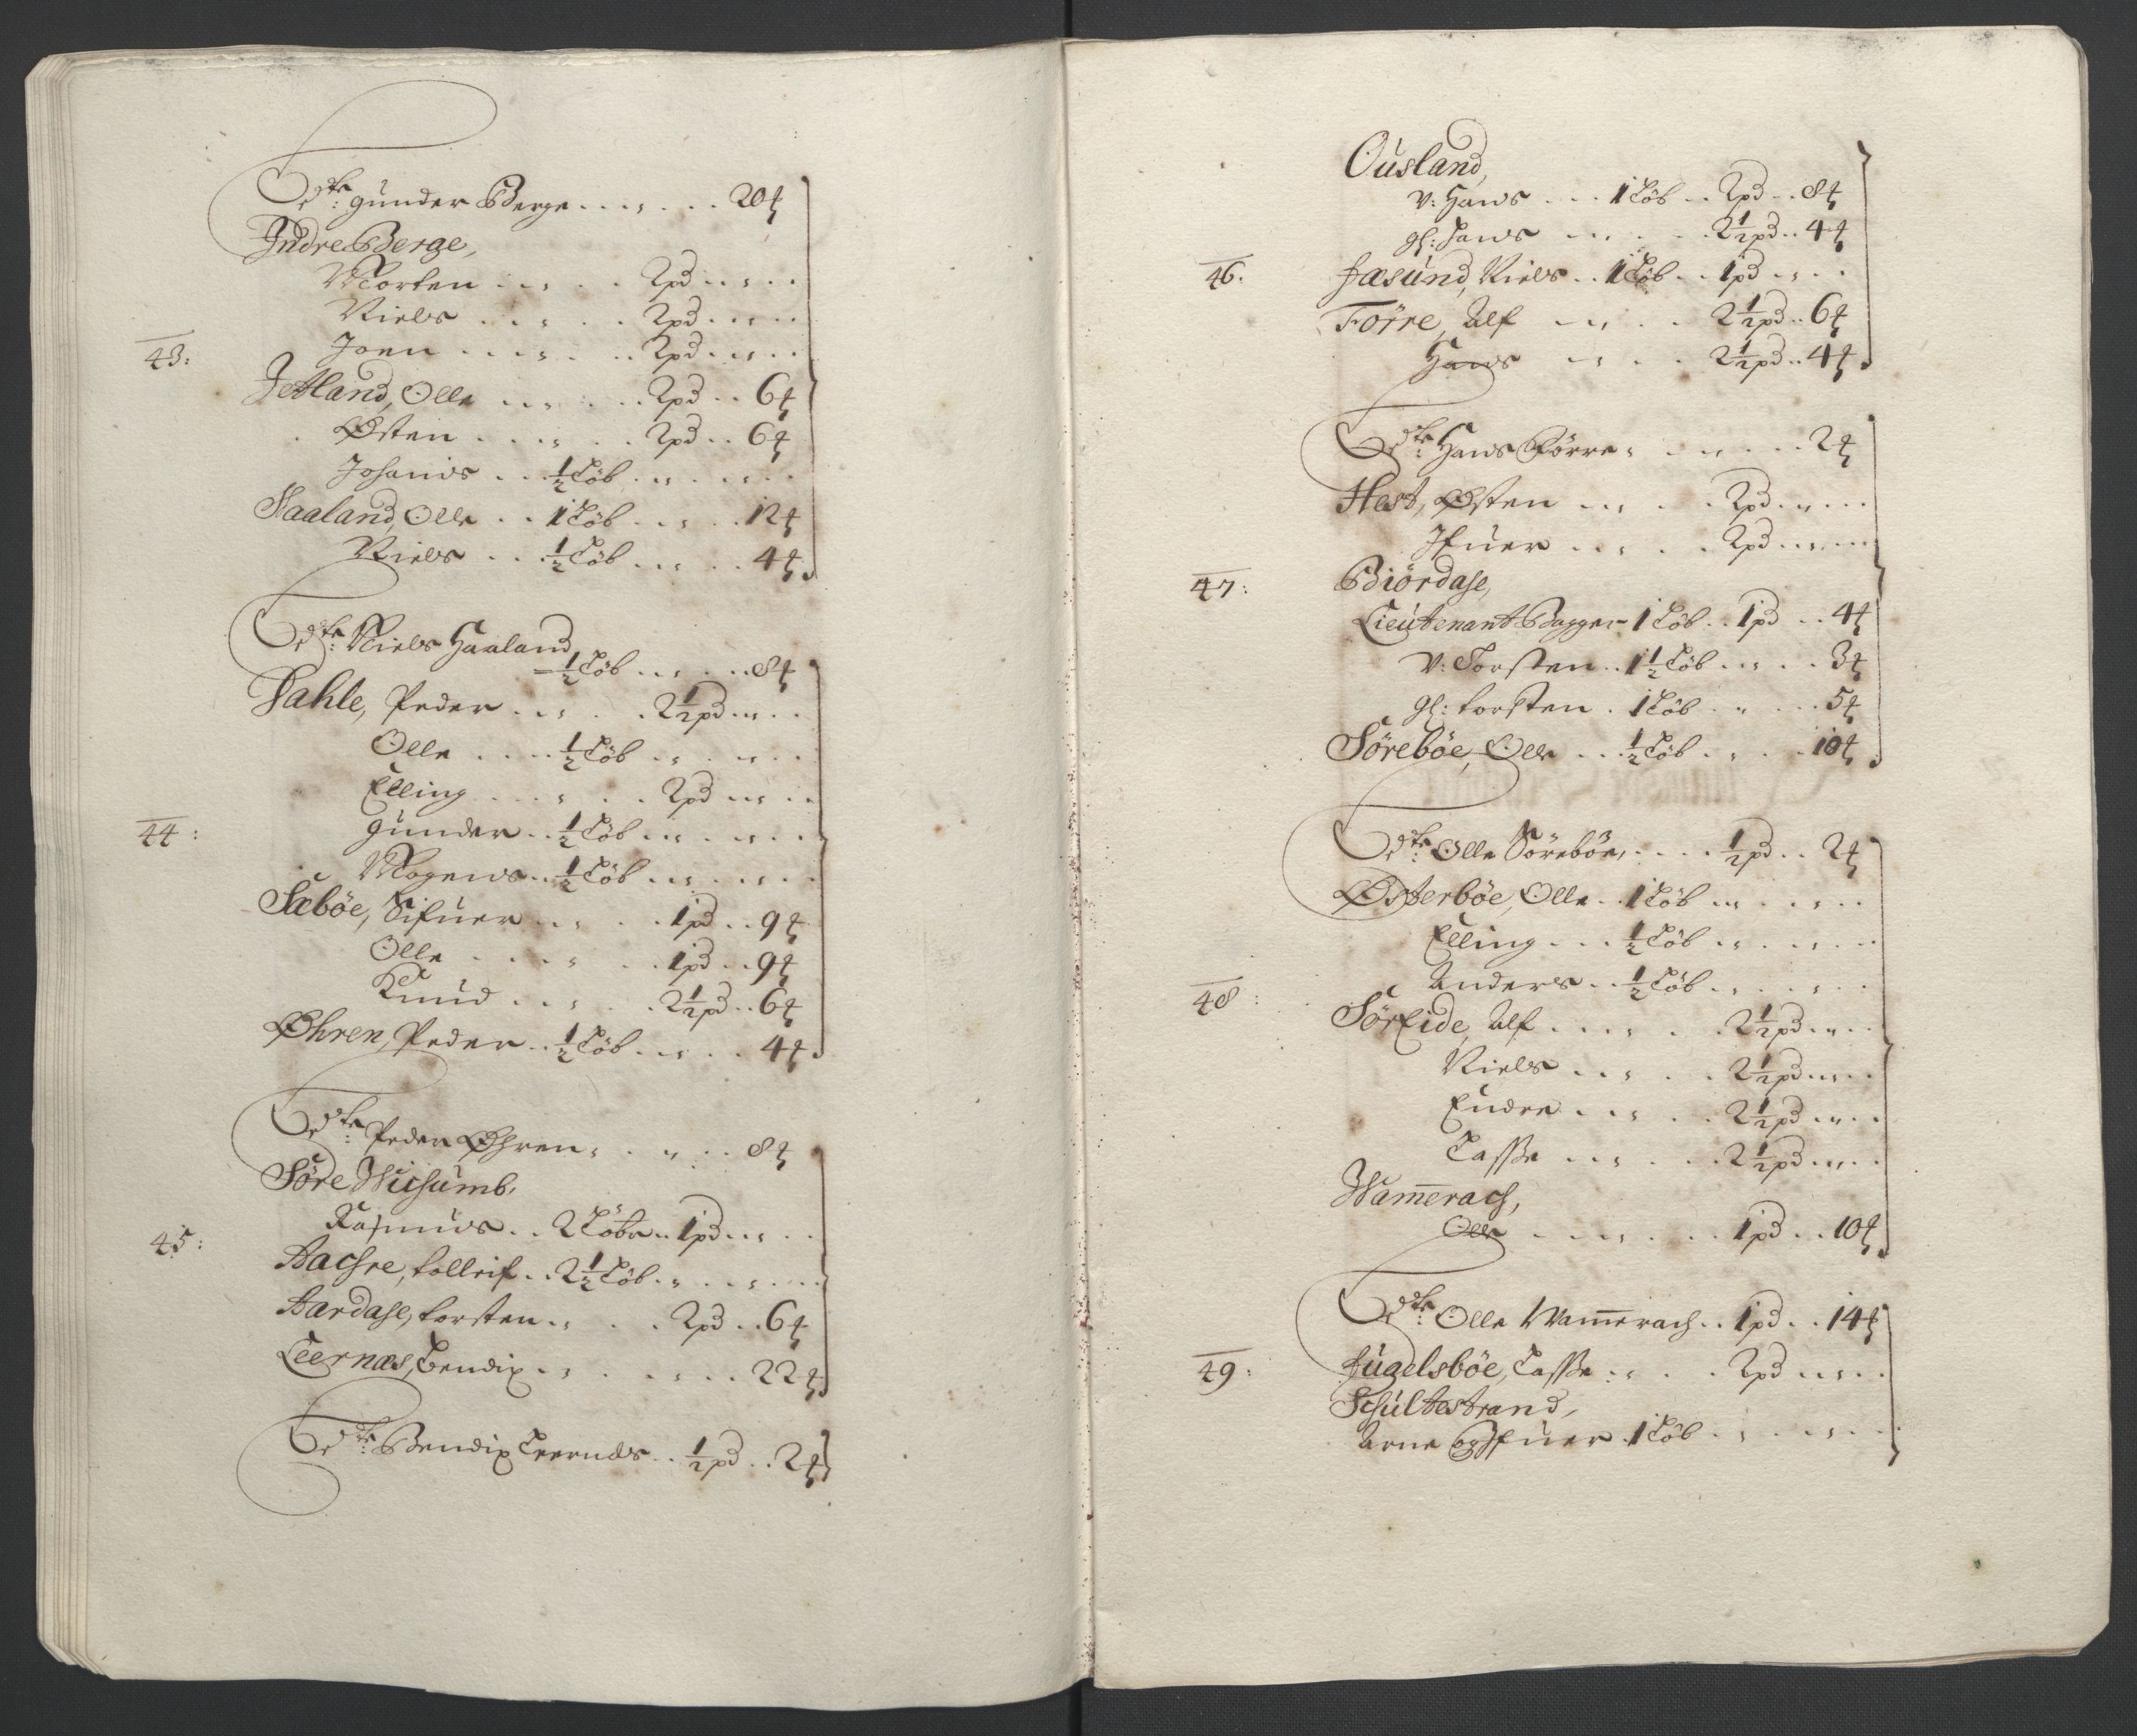 d:ke gunder Berge . . . „ . . . 20 ℔
Indre Berge,
Morten . . „ . . 2 pd . . „ . .
Niels . . . „ . . 2 pd . . „ . .
43:
Joen . . . „ . . 2 pd . . „ . .
Jetland, Olle . . „ . . 2 pd . . 6 ℔
Østen . . . „ . . 2 pd . . 6 ℔
Johanis . . ½ Løb . . „ . . „ . .
Haaland, Olle . . 1 Løb . . „ . . 12 ℔
Niels . . ½ Løb . . „ . . 4 ℔
d:ke Niels Haaland
½ Løb . . „ . . 8 ℔
Dahle, Peder . . „ . . 2½ pd . „ . .
Olle . . . . ½ Løb . „ . . „ . .
Elling . . . „ . . 2 pd . . „ . .
44:
gunder . . ½ Løb . „ . . „ . .
Mogens . . ½ Løb . . „ . . „ . .
Sæbøe, Sifuer . . „ . . 1 pd . . 9 ℔
Olle . . . . „ . . 1 pd . . 9 ℔
Knud . . . „ . . 2½ pd . . 6 ℔
Øhren, Peder . . ½ Løb . . „ . . 4 ℔
d:ke Peder Øhren „ . . „ . . 8 ℔
Søre Wichumb,
45:
Rasmus . . 2 Løbe . . 1 pd . . „ . .
Aachre, tolleif . . 2½ Løb . „ . . „ . .
Aardahl, torsten . „ . . 2 pd . . 6 ℔
Leernæs, Bendix . „ . . „ . . 22 ℔
d:ke Bendix Leernæs . . ½ pd . . 2 ℔
Ousland,
v: Hans . . . 1 Løb . . 2 pd . . 8 ℔
gl: Hans . . „ . . 2½ pd . . 4 ℔
46.
Fæsund, Niels . . 1 Løb . . 1 pd . „ . .
Førre, Alf . . „ . . 2½ pd . . 6 ℔
Hans . . „ . . 2½ pd . . 4 ℔
d:ke Hans Førre „ . . „ . . 2 ℔
Hest, Østen . . „ . . 2 pd . „ . .
Ifuer . . „ . . 2 pd . . „ . .
47:
Biørdahl,
Lieutenant Bagger 1 Løb . . 1 pd . . 4 ℔
v: Torsten . . 1½ Løb . . „ . . 3 ℔
gl: torsten . 1 Løb . „ . . 5 ℔
Sørebøe, Olle . . ½ Løb . „ . . 10 ℔
d:ke Olle Sørebøe, . . . ½ pd . . 2 ℔
Østerbøe, Olle . . 1 Løb . „ . . „ . .
Elling . . . ½ Løb . „ . . „ . .
48:
Anders . . ½ Løb . „ . . „ . .
Sørfide, Alf . . . „ . . 2½ pd . „ . .
Niels . . „ . . 2½ pd . „ . .
Endre . . „ . . 2½ pd . „ . .
Lasse . . „ . . 2½ pd . „ . .
Wam̄erach,
Olle . . . „ . . 1 pd . . 10 ℔
d:ke Olle Wam̄erach . . 1 pd . . 14 ℔
49:
Fugelsbøe, Lasse . „ . . 2 pd . . „ . .
Schultestrand,
Arne og Ifuer 1 Løb . „ . . „ . .